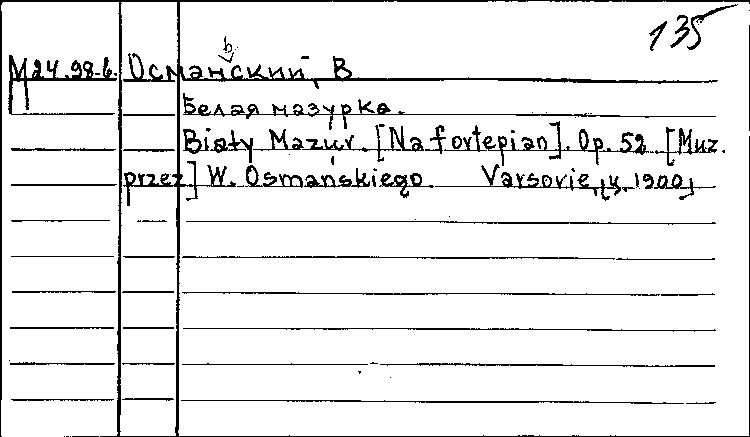 135
М24.98-6. Османьский, В
Белая мазурка.
Biały Mazur. [Na fortepian]. Op. 52 [Muz.
przez] W. Osmańskiego. Varsovie, [y. 1900]